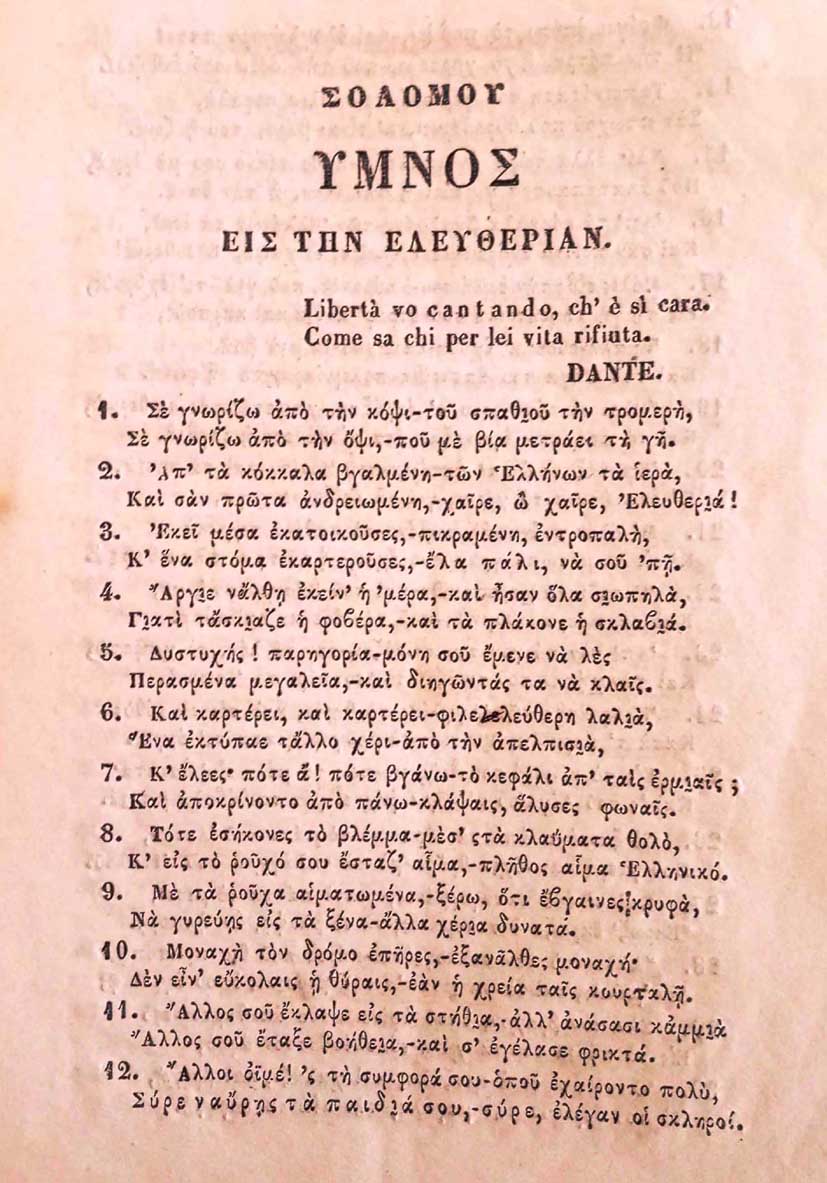 ΣΟΛΟΜΟΥ
ΥΜΝΟΣ
ΕΙΣ ΤΗΝ ΕΛΕΥΘΕΡΙΑΝ.
Libertà vo cantando, ch' è sì cara.
Come sa chi per lei vita rifiuta.
DANTE.
1. Σὲ γνωρίζω ἀπὸ τὴν κόψι-τοῦ σπαθιοῦ τὴν τρομερὴ,
Σὲ γνωρίζω ἀπὸ τὴν ὄψι,-ποῦ μὲ βία μετράει τὴ γῆ.
2. 'Απ' τὰ κόκκαλα βγαλμένη-τῶν Ἑλλήνων τὰ ἱερὰ,
Καὶ σὰν πρῶτα ἀνδρειωμένη,-χαῖρε, ὢ χαῖρε, Ἐλευθεριά!
3. Ἐκεῖ μέσα ἐκατοικοῦσες,-πικραμένη, ἐντροπαλὴ,
Κ' ἕνα στόμα ἐκαρτεροῦσες,-ἔλα πάλι, νὰ σοῦ 'πῇ.
4. Ἄργιε νἄλθῃ ἐκείν' ἡ 'μέρα,-καὶ ἦσαν ὅλα σιωπηλὰ,
Γιατὶ τἄσκιαζε ἡ φοβέρα,-καὶ τὰ πλάκονε ἡ σκλαβιά.
5. Δυστυχής! παρηγορία-μόνη σοῦ ἔμενε νὰ λὲς
Περασμένα μεγαλεῖα,-καὶ διηγῶντάς τα νὰ κλαῖς.
6. Καὶ καρτέρει, καὶ καρτέρει-φιλελελεύθερη λαλιὰ,
Ἕνα ἐκτύπαε τἄλλο χέρι-ἀπὸ τὴν ἀπελπισιὰ,
7. Κ' ἔλεες· πότε ἄ! πότε βγάνω-τὸ κεφάλι ἀπ' ταῖς ἐρμιαῖς;
Καὶ ἀποκρίνοντο ἀπὸ πάνω-κλάψαις, ἅλυσες φωναῖς.
8. Τότε ἐσήκονες τὸ βλέμμα-μὲσ' ςτὰ κλαύματα θολὸ,
Κ' εἰς τὸ ῥοῦχό σου ἔσταζ' αἷμα,-πλῆθος αἷμα Ἑλληνικό.
9. Μὲ τὰ ῥοῦχα αἱματωμένα,-ξέρω, ὅτι ἔβγαινες κρυφὰ,
Νὰ γυρεύῃς εἰς τὰ ξένα-ἄλλα χέρια δυνατά.
10. Μοναχὴ τὸν δρόμο ἐπῆρες,-ἐξανᾶλθες μοναχή·
Δὲν εἶν' εὔκολαις ᾑ θύραις,-ἐὰν ἡ χρεία ταῖς κουρταλῇ.
11. Ἄλλος σοῦ ἔκλαψε εἰς τὰ στήθια,-ἀλλ' ἀνάσασι κᾀμμιὰ
Ἄλλος σοῦ ἔταξε βοήθεια,-καὶ σ' ἐγέλασε φρικτά.
12. Ἄλλοι ὀϊμέ! 'ς τὴ συμφορά σου-ὁποῦ ἐχαίροντο πολὺ,
Σύρε ναὔρῃς τὰ παιδιά σου,-σύρε, ἐλέγαν οἱ σκληροί.